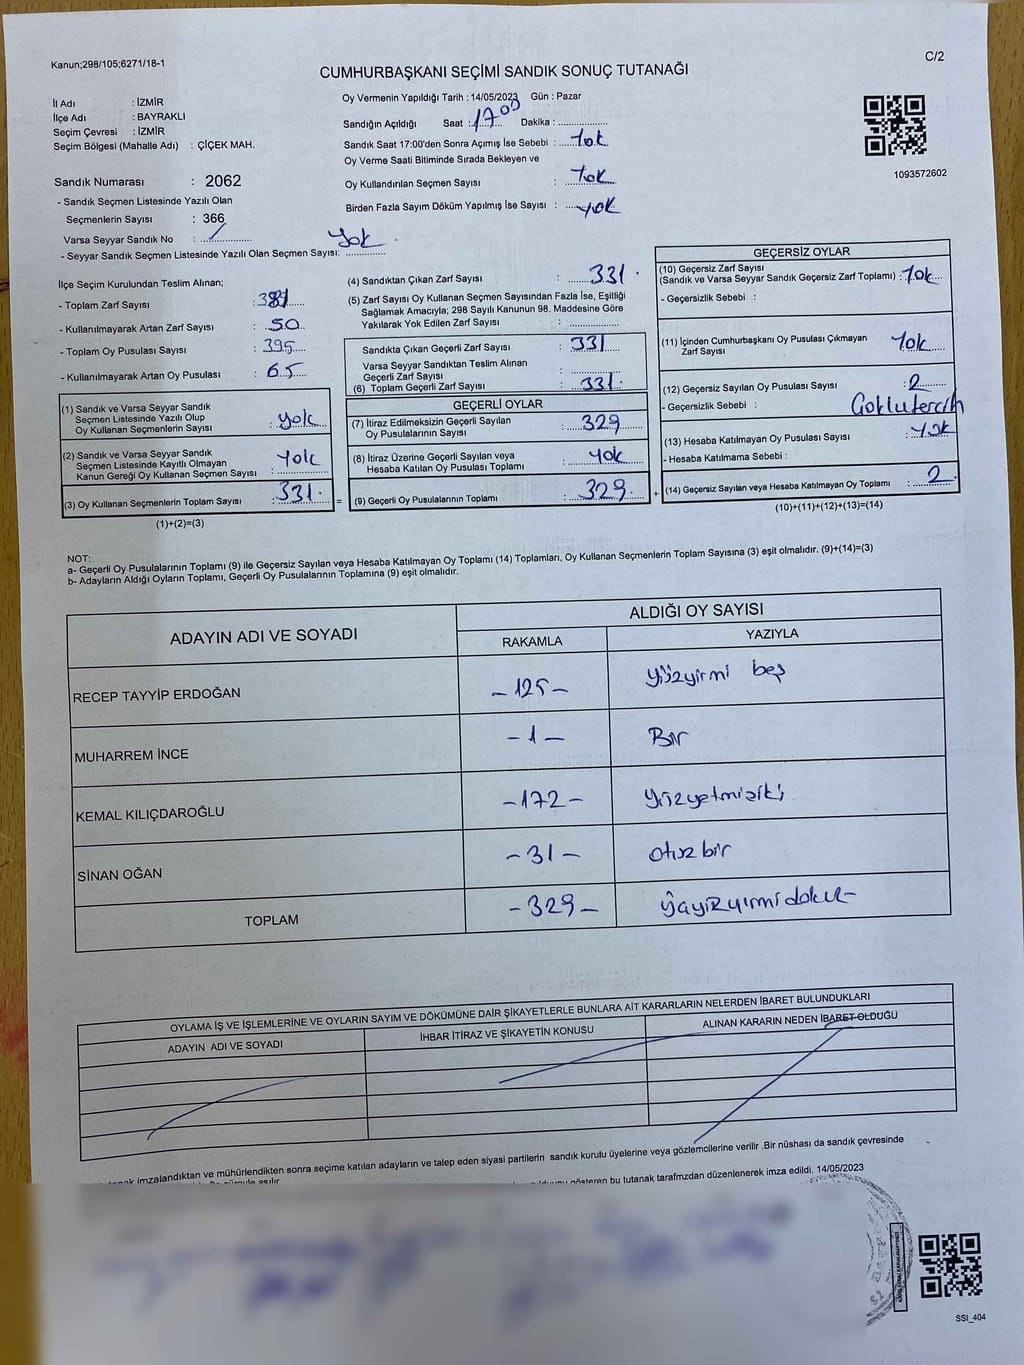 Kanun;298/105;6271/18-1
C/2
CUMHURBAŞKANI SEÇİMİ SANDIK SONUÇ TUTANAĞI
İl Adı : İZMİR
İlçe Adı : BAYRAKLI
Seçim Çevresi : İZMİR
Seçim Bölgesi (Mahalle Adı) : ÇİÇEK MAH.
Sandık Numarası : 2062
- Sandık Seçmen Listesinde Yazılı Olan
Seçmenlerin Sayısı : 366
Varsa Seyyar Sandık No :
- Seyyar Sandık Seçmen Listesinde Yazılı Olan Seçmen Sayısı: Yok
Oy Vermenin Yapıldığı Tarih : 14/05/2023 Gün : Pazar
Sandığın Açıldığı Saat : 17 00 Dakika :
Sandık Saat 17:00'den Sonra Açımış İse Sebebi : Yok
Oy Verme Saati Bitiminde Sırada Bekleyen ve
Oy Kullandırılan Seçmen Sayısı : Yok
Birden Fazla Sayım Döküm Yapılmış İse Sayısı : Yok
1093572602
İlçe Seçim Kurulundan Teslim Alınan;
- Toplam Zarf Sayısı :
- Kullanılmayarak Artan Zarf Sayısı : 50
- Toplam Oy Pusulası Sayısı : 395
- Kullanılmayarak Artan Oy Pusulası : 65
(1) Sandık ve Varsa Seyyar Sandık
Seçmen Listesinde Yazılı Olup
Oy Kullanan Seçmenlerin Sayısı : yok
(2) Sandık ve Varsa Seyyar Sandık
Seçmen Listesinde Kayıtlı Olmayan
Kanun Gereği Oy Kullanan Seçmen Sayısı : Yok
(3) Oy Kullanan Seçmenlerin Toplam Sayısı : 331. =
(1)+(2)=(3)
(4) Sandıktan Çıkan Zarf Sayısı : 331.
(5) Zarf Sayısı Oy Kullanan Seçmen Sayısından Fazla İse, Eşitliği
Sağlamak Amacıyla; 298 Sayılı Kanunun 98. Maddesine Göre
Yakılarak Yok Edilen Zarf Sayısı :
Sandıkta Çıkan Geçerli Zarf Sayısı : 331
Varsa Seyyar Sandıktan Teslim Alınan
Geçerli Zarf Sayısı :
(6) Toplam Geçerli Zarf Sayısı : 331.
GEÇERLİ OYLAR
(7) İtiraz Edilmeksizin Geçerli Sayılan
Oy Pusulalarının Sayısı : 329
(8) İtiraz Üzerine Geçerli Sayılan veya
Hesaba Katılan Oy Pusulası Toplamı : Yok
(9) Geçerli Oy Pusulalarının Toplamı : 329. +
GEÇERSİZ OYLAR
(10) Geçersiz Zarf Sayısı
(Sandık ve Varsa Seyyar Sandık Geçersiz Zarf Toplamı) : Yok
- Geçersizlik Sebebi :
(11) İçinden Cumhurbaşkanı Oy Pusulası Çıkmayan
Zarf Sayısı Yok
(12) Geçersiz Sayılan Oy Pusulası Sayısı : 2
- Geçersizlik Sebebi :
(13) Hesaba Katılmayan Oy Pusulası Sayısı : Yok
- Hesaba Katılmama Sebebi :
(14) Geçersiz Sayılan veya Hesaba Katılmayan Oy Toplamı : 2.
(10)+(11)+(12)+(13)=(14)
NOT:
a- Geçerli Oy Pusulalarının Toplamı (9) ile Geçersiz Sayılan veya Hesaba Katılmayan Oy Toplamı (14) Toplamları, Oy Kullanan Seçmenlerin Toplam Sayısına (3) eşit olmalıdır. (9)+(14)=(3)
b- Adayların Aldığı Oyların Toplamı, Geçerli Oy Pusulalarının Toplamına (9) eşit olmalıdır.
ADAYIN ADI VE SOYADI
ALDIĞI OY SAYISI
RAKAMLA YAZIYLA
RECEP TAYYİP ERDOĞAN - 125 - Yüzyirmi beş
MUHARREM İNCE - 1 - Bir
KEMAL KILIÇDAROĞLU - 172 - Yüzyetmişiki
SİNAN OĞAN - 31 - otuzbir
TOPLAM - 329 -
OYLAMA İŞ VE İŞLEMLERİNE VE OYLARIN SAYIM VE DÖKÜMÜNE DAİR ŞİKAYETLERLE BUNLARA AİT KARARLARIN NELERDEN İBARET BULUNDUKLARI
ADAYIN ADI VE SOYADI
İHBAR İTİRAZ VE ŞİKAYETİN KONUSU
ALINAN KARARIN NEDEN İBARET OLDUĞU
imzalandıktan ve mühürlendikten sonra seçime katılan adayların ve talep eden siyasi partilerin sandık kurulu üyelerine veya gözlemcilerine verilir .Bir nüshası da sandık çevresinde
gösteren bu tutanak tarafmzdan düzenlenerek imza edildi. 14/05/2023
SSI_404